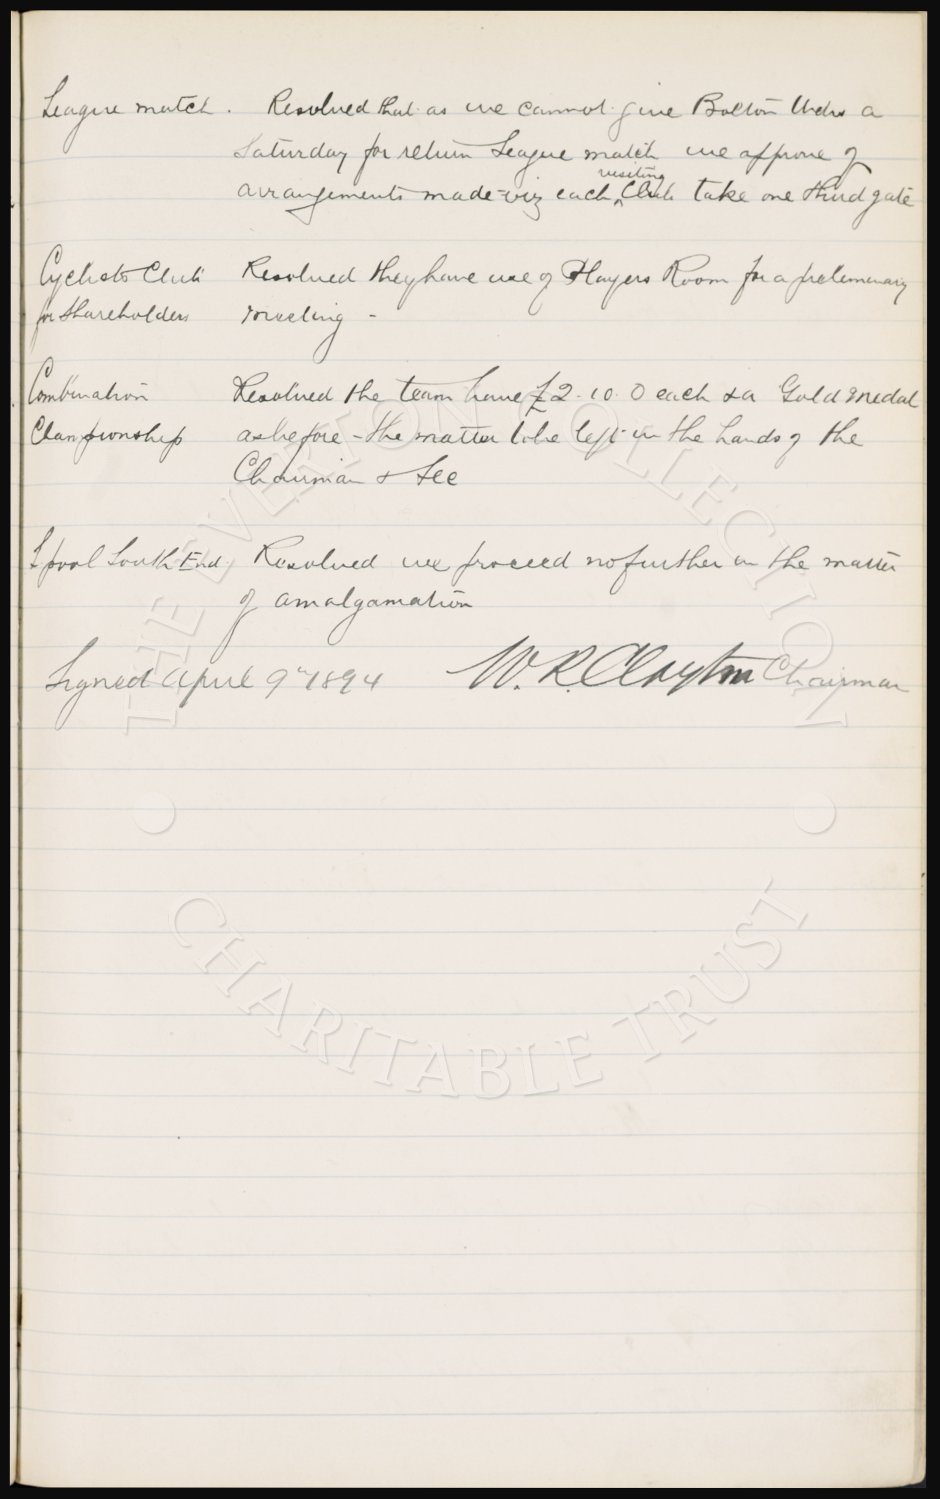 League match. Resolved that as we cannot give Bolton Wdrs a
Saturday for return League match we approve of
arrangements made = viz each visiting Club take one third gate
Cyclists Club Resolved they have use of Players Room for a preliminary
for Shareholders meeting -
Combination Resolved the team have £2.10.0 each & a Gold medal
Championship as before - the matter to be left in the hands of the
Chairman & Sec
L'pool South End. Resolved we proceed no further in the matter
of amalgamation
Signed April 9th 1894 W. R. Clayton Chairman
THE EVERTON COLLECTION
CHARITABLE TRUST